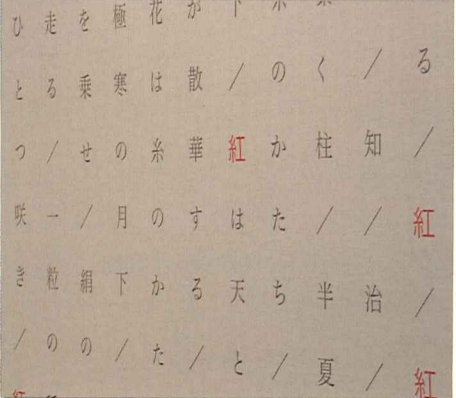 る／紅／紅
／知／治／
く柱／半夏
のかたち／
／紅は天と
が散華する／
花は糸のかた
極寒の月下／
を乗せ／絹の
走る／一粒の
ひとつ咲き／紅